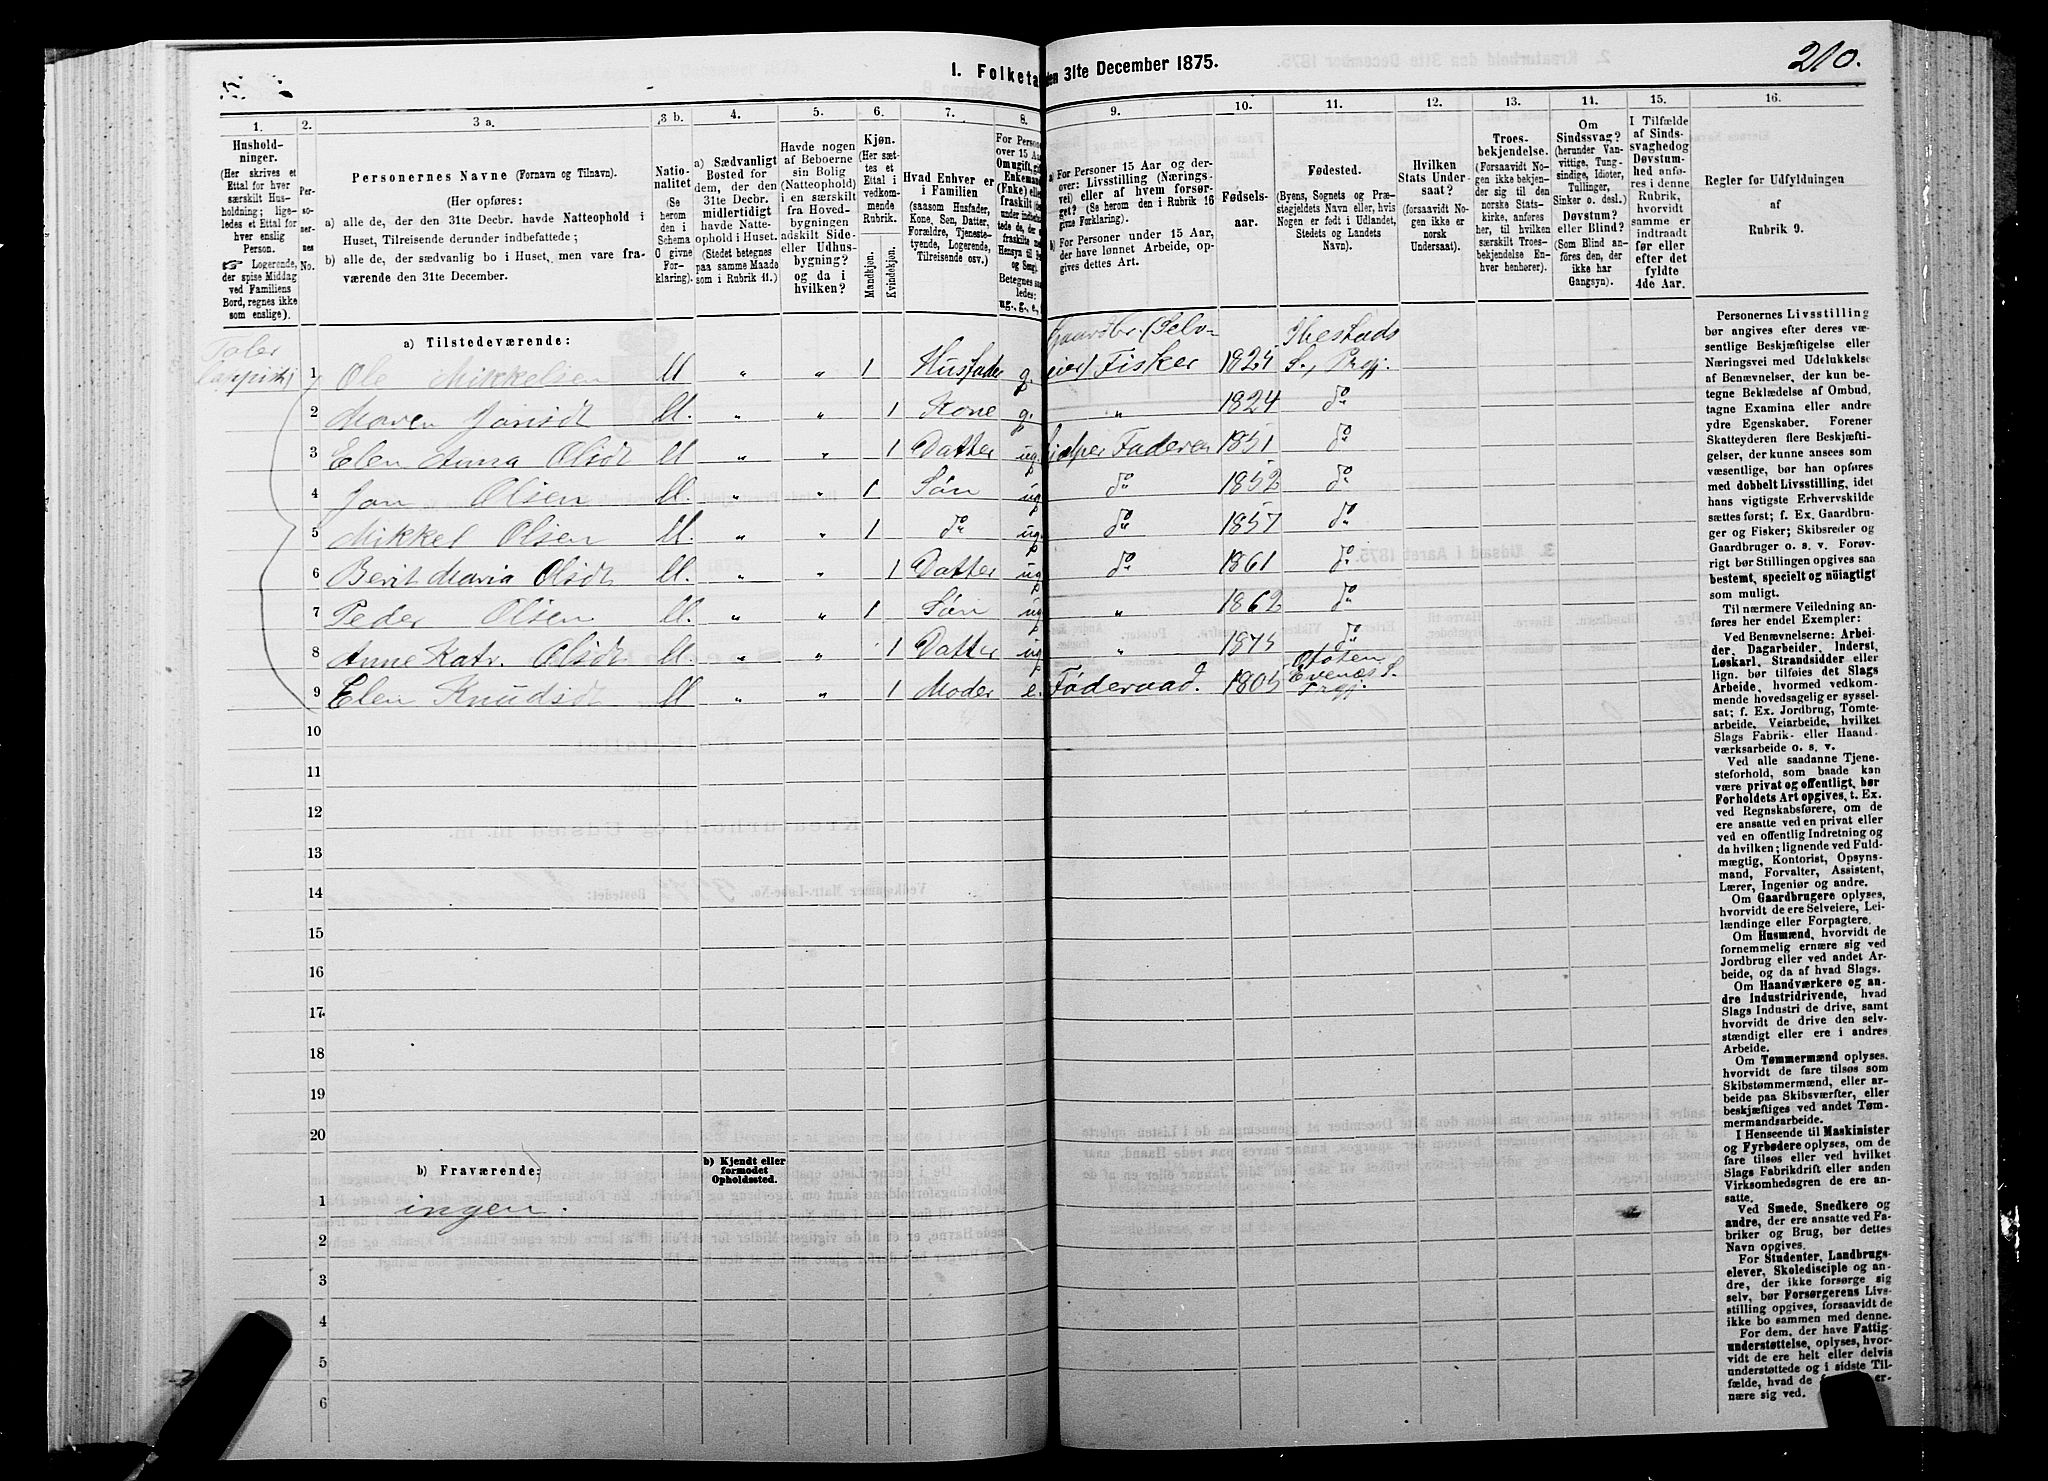 210.
I. Folketa
den 31te December 1875.
1.
2.
3 a.
3 b.
4.
5.
6.
7.
8.
9.
10.
11.
12.
13.
14.
15.
16.
Hushold-
ninger.
(Her skrives et
Ettal for hver
særskilt Hus-
holdning; lige-
ledes et Ettal for
hver enslig
Person.
☞ Logerende,
der spise Middag
ved Familiens
Bord, regnes ikke
som enslige).
Per-
so-
ner-
nes
No.
Personernes Navne (Fornavn og Tilnavn).
(Her opføres:
a) alle de, der den 31te Decbr. havde Natteophold i
Huset, Tilreisende derunder indbefattede;
b) alle de, der sædvanlig bo i Huset, men vare fra-
værende den 31te December.
Natio-
nalitet
(Se
herom
den i
Schema
C givne
For-
klaring).
a) Sædvanligt
Bosted for
dem, der den
31te Decbr.
midlertidigt
havde Natte-
ophold i Huset.
(Stedet betegnes
paa samme Maade
som i Rubrik 11.)
Havde nogen
af Beboerne
sin Bolig
(Natteophold)
i en særskilt
fra Hoved-
bygningen
adskilt Side-
eller Udhus-
bygning?
og da i
hvilken?
Kjøn.
(Her sæt-
tes et
Ettal i
vedkom-
mende
Rubrik.
Mandkjøn.
Kvindekjøn.
Hvad Enhver er
i Familien
(saasom Husfader,
Kone, Søn, Datter,
Forældre, Tjeneste-
tyende, Logerende,
Tilreisende osv.)
For Personer
over 15 Aar
a) For Personer 15 Aar og der-
over: Livsstilling (Nærings-
vei) eller af hvem forsør-
get? (Se herom den i Rubrik 16
givne Forklaring).
b) For Personer under 15 Aar,
der have lønnet Arbeide, op-
gives dettes Art.
Fødsels-
aar.
Fødested.
(Byens, Sognets og Præ-
stegjeldets Navn eller, hvis
Nogen er født i Udlandet,
Stedets og Landets
Navn).
Hvilken
Stats Under-
saat?
(forsaavidt No-
gen ikke er
norsk
Undersaat).
Troes-
bekjendelse.
(Forsaavidt No-
gen ikke bekjen-
der sig til den
norske Stats-
kirke, anføres
her, til hvilken
særskilt Troes-
bekjendelse En-
hver henhører).
Om
Sindssvag?
(herunder Van-
vittige, Tung-
sindige, Idioter,
Tullinger,
Sinker o. desl.)
Døvstum?
eller Blind?
(Som Blind an-
føres den, der
ikke har
Gangsyn).
I Tilfælde
af Sinds-
svaghed og
Døvstum-
hed anfø-
res i denne
Rubrik,
hvorvidt
samme er
indtraadt
før eller
efter det
fyldte
4de Aar.
Regler for Udfyldningen
af
Rubrik 9.
a) Tilstedeværende:
1 Ole Mikkelsen " " 1 Husfader g. Fisker Ibestads S., Prgj.
2 Maren Jonsdt " " 1 Kone g. " 1824 do
3 Elen Anna Olsdt " " 1 Datter ug. Faderen 1851 do
4 Jon Olsen " " 1 Søn ug do 1852 do
5 Mikkel Olsen " " 1 do ug. do 1857 do
6 Berit Maria Olsdt " " 1 Datter ug do 1861 do
7 Peder Olsen " " 1 Søn ug " 1862 do
8 Anne Katr. Olsdt " " 1 Datter ug " 1875 do
9 Elen Knudsdt " " 1 Moder e. Føderaad. 1805 Evenæs S. Prgj.
10
11
12
13
14
15
16
17
18
19
20
b) Fraværende:
b) Kjendt eller
formodet
Opholdssted.
1 ingen.
2
3
4
5
6
Personernes Livsstilling
bør angives efter deres væ-
sentlige Beskjæftigelse eller
Næringsvei med Udelukkelse
af Benævnelser, der kun be-
tegne Beklædelse af Ombud,
tagne Examina eller andre
ydre Egenskaber. Forener
Skatteyderen flere Beskjæfti-
gelser, der kunne ansees som
væsentlige, bør han opføres
med dobbelt Livsstilling, idet
hans vigtigste Erhvervskilde
sættes først; f. Ex. Gaardbru-
ger og Fisker; Skibsreder og
Gaardbruger o. s. v. Forøv-
rigt bør Stillingen opgives saa
bestemt, specielt og nöiagtigt
som muligt.
Til nærmere Veiledning an-
føres her endel Exempler:
Ved Benævnelserne: Arbei-
der, Dagarbeider, Inderst,
Løskarl, Strandsidder eller
lign. bør tilføies det Slags
Arbeide, hvormed vedkom-
mende hovedsagelig er syssel-
sat; f. Ex. Jordbrug, Tomte-
arbeide, Veiarbeide, hvilket
Slags Fabrik- eller Haand-
værksarbeide o. s. v.
Ved alle saadanne Tjene-
steforhold, som baade kan
være privat og offentligt, bør
Forholdets Art opgives, t. Ex.
ved Regnskabsførere, om de
ere ansatte ved en privat eller
ved en offentlig Indretning og
da hvilken; lignende ved Fuld-
mægtig, Kontorist, Opsyns-
mand, Forvalter, Assistent,
Lærer, Ingeniør og andre.
Om Gaardbrugere oplyses,
hvorvidt de ere Selveiere, Lei-
lændinge eller Forpagtere.
Om Husmænd, hvorvidt de
fornemmelig ernære sig ved
Jordbrug eller ved andet Ar-
beide, og da af hvad Slags.
Om Haandværkere og an-
dre Industridrivende, hvad
Slags Industri de drive, samt
hvorvidt de drive den selv-
stændigt eller ere i andres
Arbeide.
Om Tømmermænd oplyses,
hvorvidt de fare tilsøs som
Skibstømmermænd, eller ar-
beide paa Skibsværfter, eller
beskjæftiges ved andet Tøm-
mermandsarbeide.
I Henseende til Maskinister
og Fyrbødere oplyses, om de
fare tilsøs eller ved hvilket
Slags Fabrikdrift eller anden
Virksomhedsgren de ere an-
satte.
Ved Smede, Snedkere og
andre, der ere ansatte ved Fa-
briker og Brug, bør dettes
Navn opgives.
For Studenter, Landbrugs-
elever, Skoledisciple og an-
dre, der ikke forsørge sig
selv, bør Forsørgerens Livs-
stilling opgives, forsaavidt de
ikke bo sammen med denne.
For dem, der have Fattig-
understøttelse, oplyses, hvor-
vidt de ere helt eller delvis
understøttede og i sidste Til-
fælde, hvad de
nære sig ved.